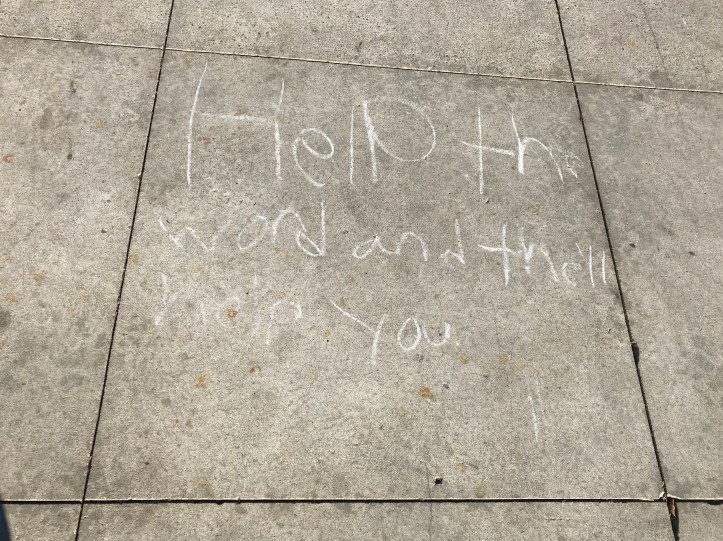 Help the
word and the'll
help you.